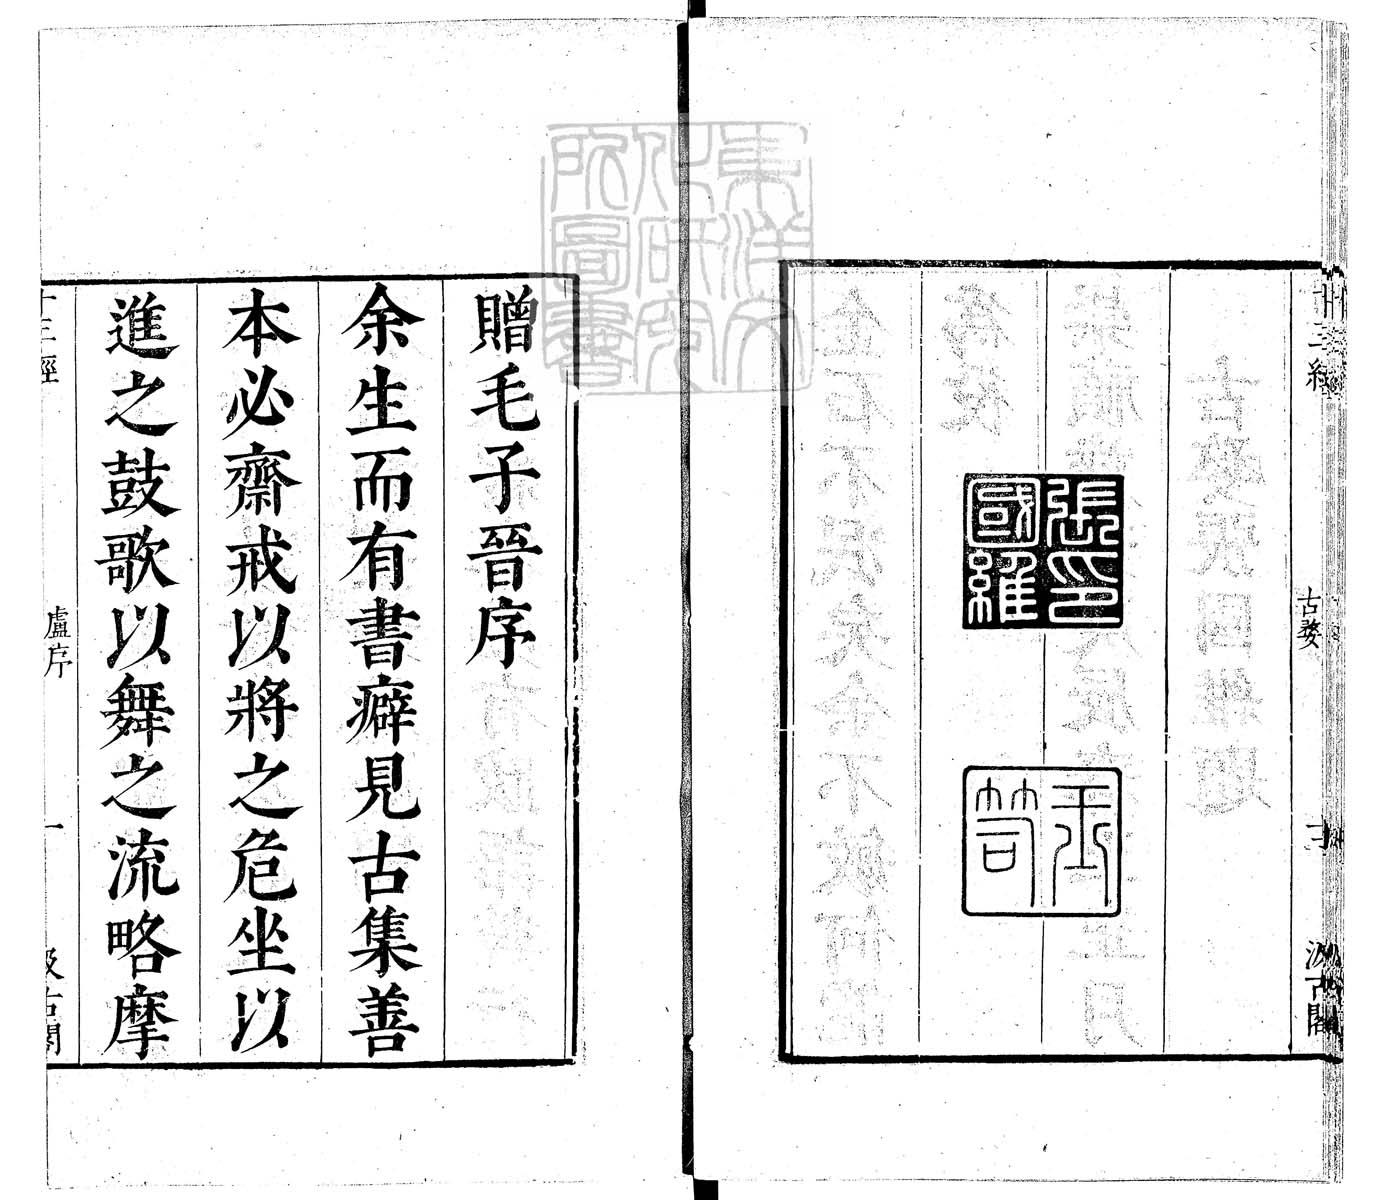 十三經
古婺
汲古閣
張印
國維
玉
笥
東洋文
化研究
所圖書
贈毛子晉序
余生而有書癖見古集善
本必齋戒以將之危坐以
進之鼓歌以舞之流略摩
十三經
盧序
一
汲古閣